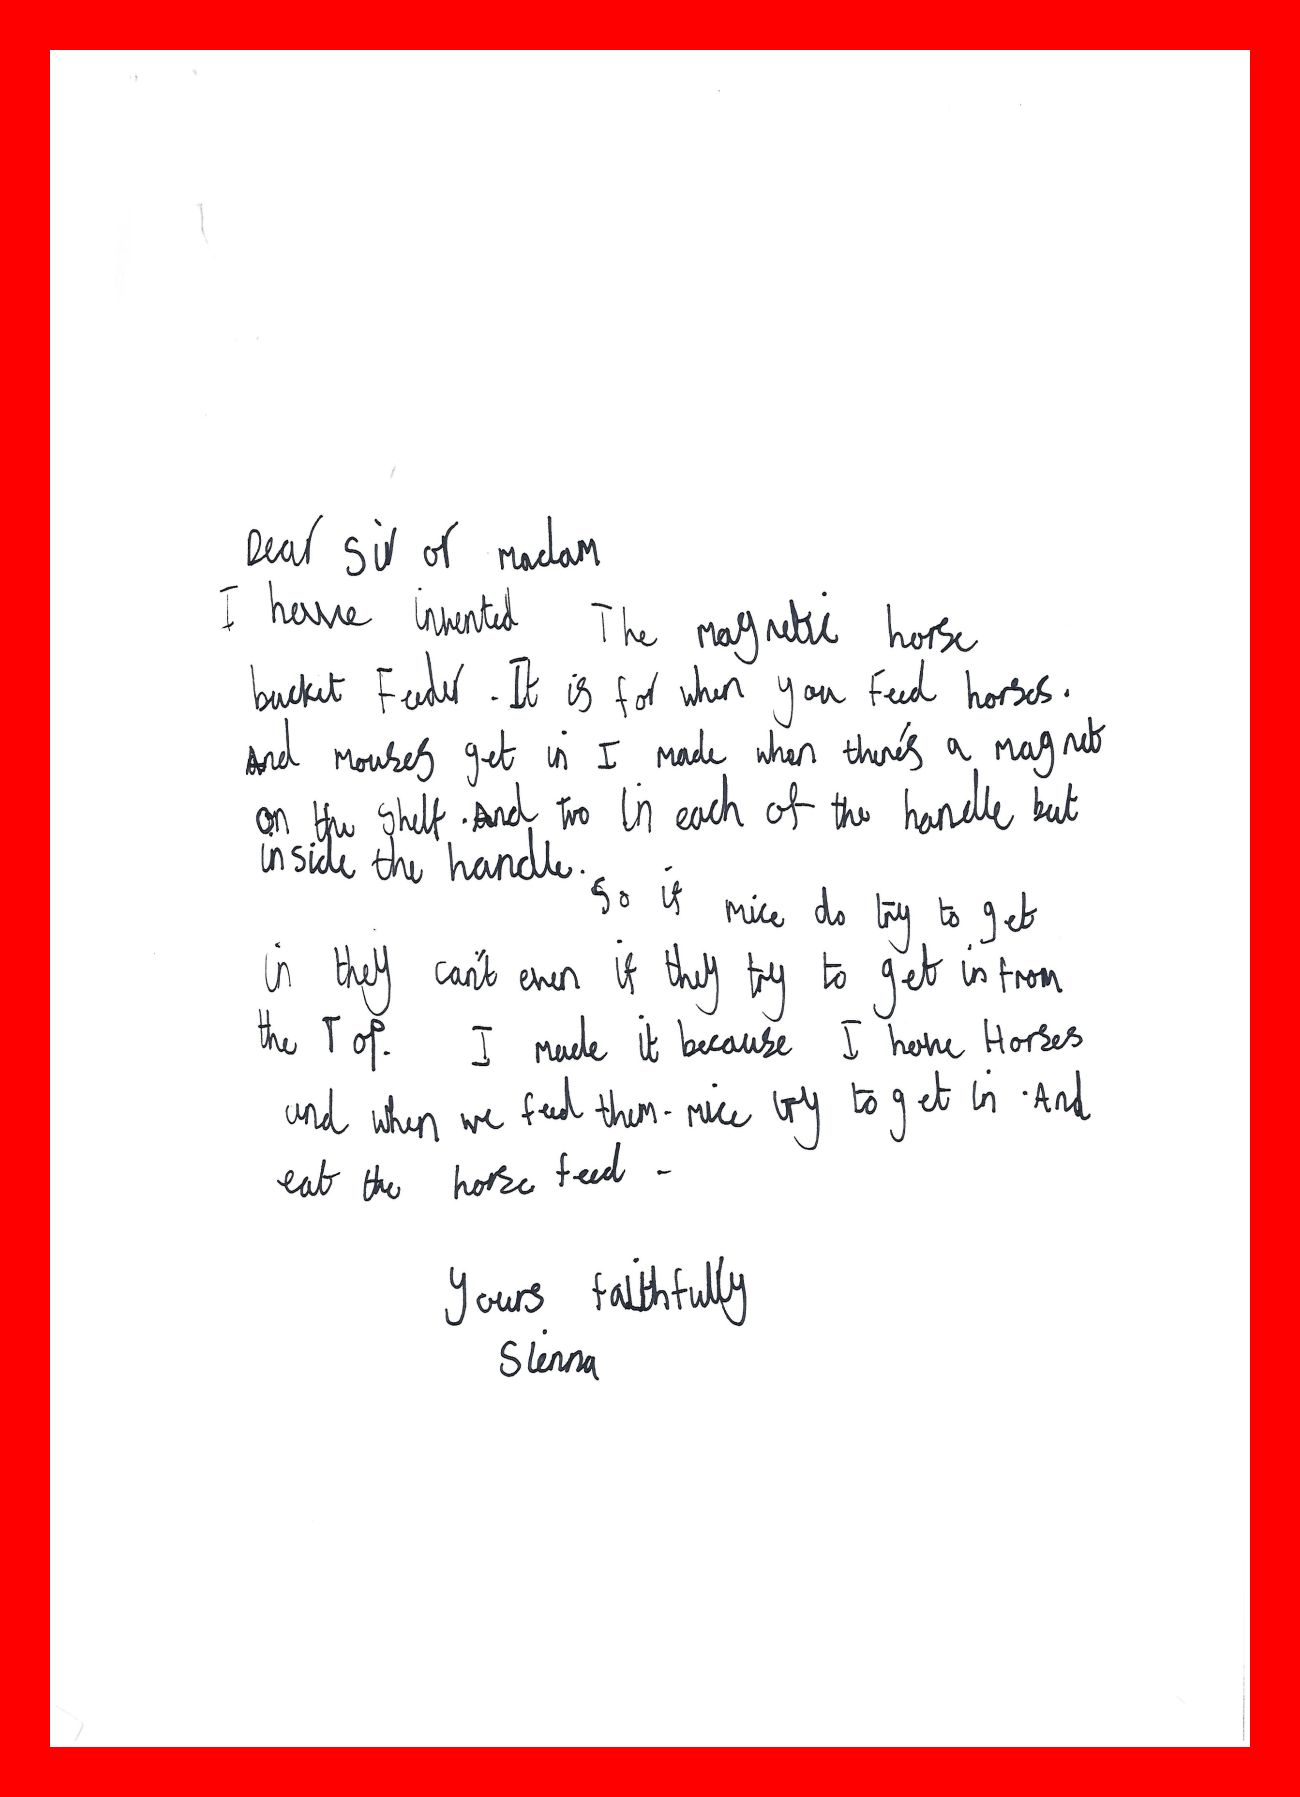 Dear Sir or madam
I have invented The magnetic horse
bucket Feeder. It is for when you Feed horses.
And mouses get in I made when there's a magnet
on the shelf. And Two in each of the handle but
inside the handle.
So if mice do try to get
in they can't even if they try to get in from
the Top. I made it because I have Horses
and when we feed them. mice try to get in. And
eat the horse feed.
Yours faithfully
Sienna